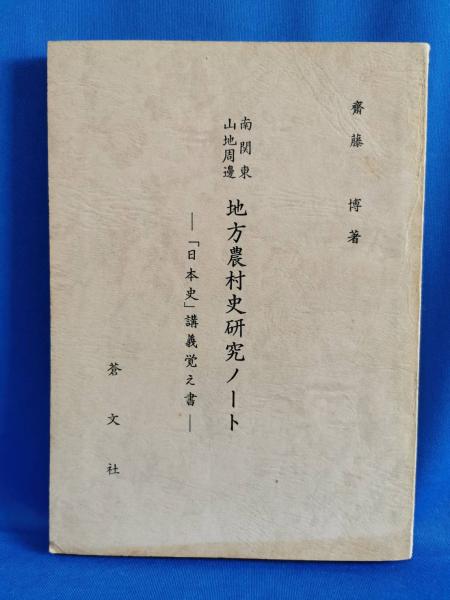 齋藤 博著
南関東
山地周邊
地方農村史研究ノート
―「日本史」講義覚え書―
蒼文社